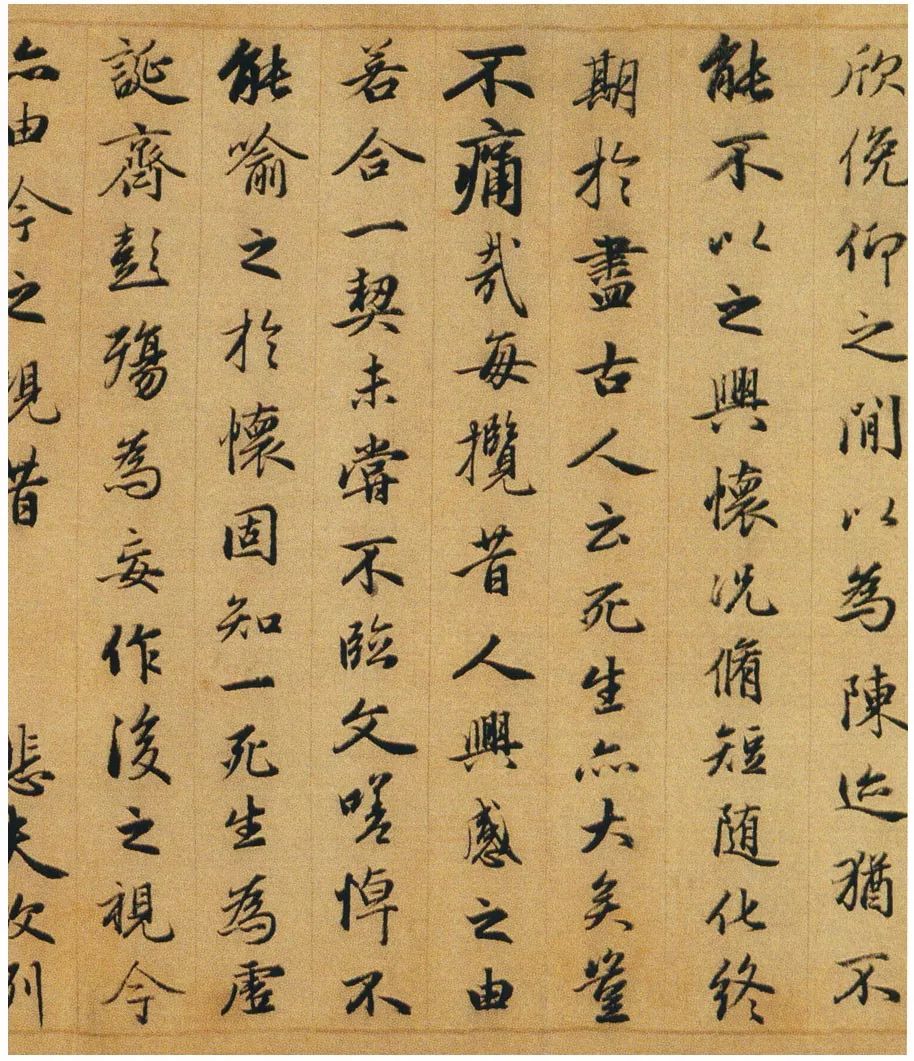 欣俛仰之閒以為陳迹猶不
能不以之興懷況脩短随化終
期於盡古人云死生亦大矣豈
不痛哉每攬昔人興感之由
若合一契未嘗不臨文嗟悼不
能喻之於懷固知一死生為虛
誕齊彭殤為妄作後之視今
亦由今之視昔 悲夫故列